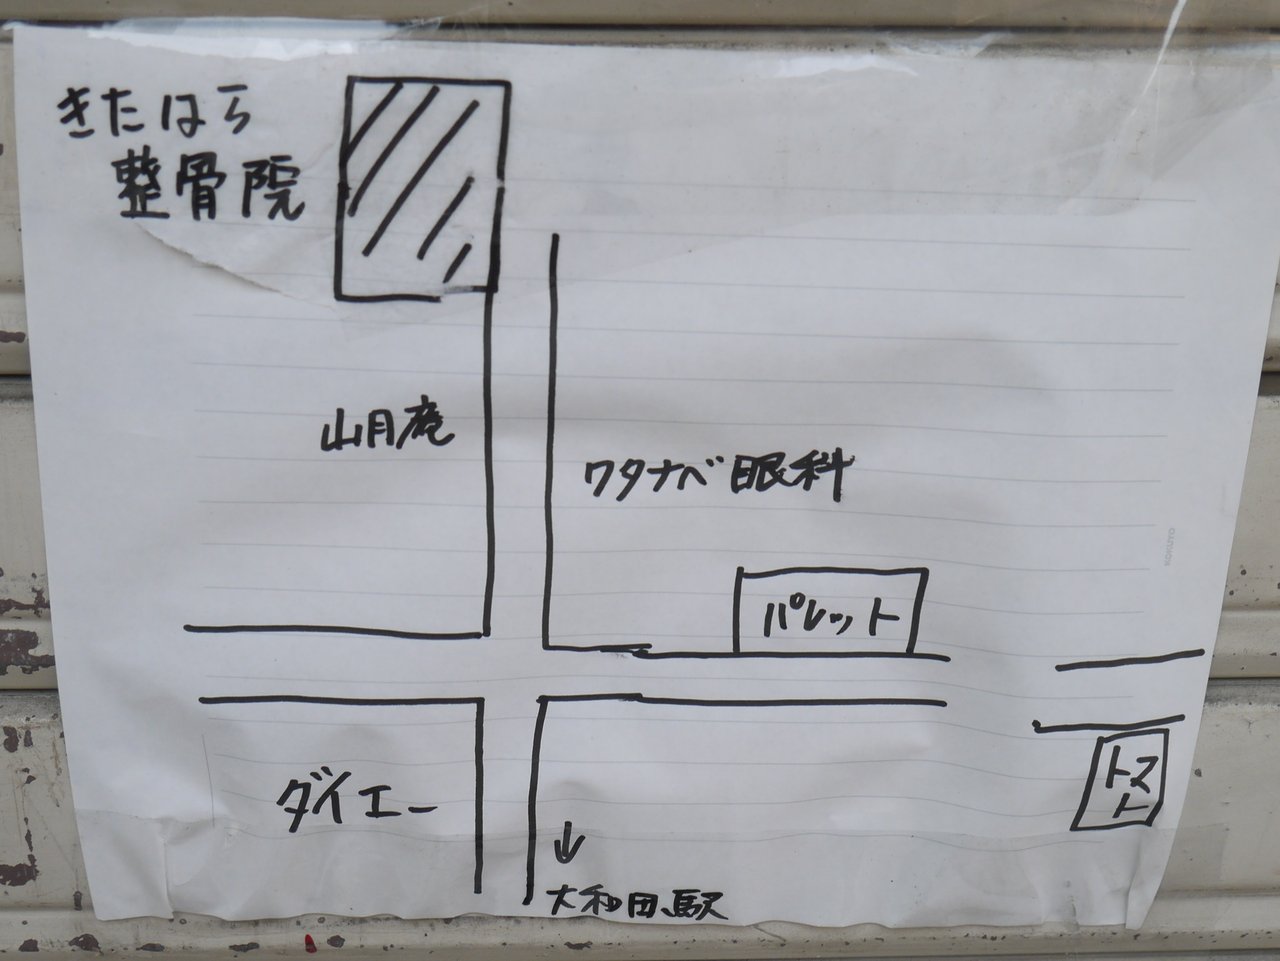 きたはら
整骨院
山月庵
ワタナベ眼科
KOKUYO
パレット
トスト
ダイエー
↓
大和田駅